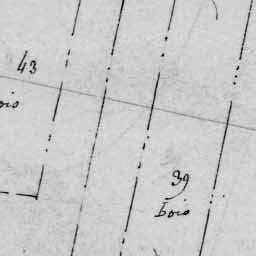 43
ois
39
bois